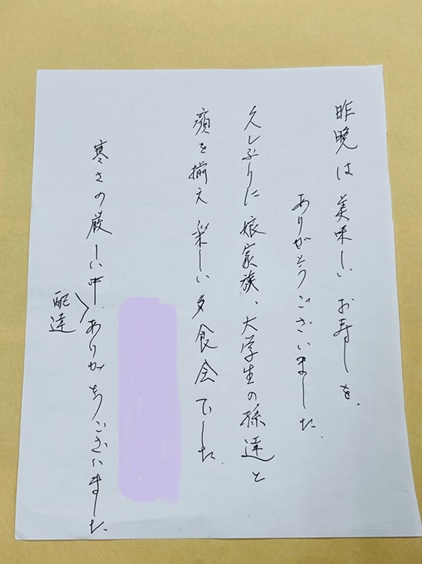 昨晩は美味しいお寿しを、
ありがとうございました。
久しぶりに娘家族、大学生の孫達と
顔を揃え楽しい夕食会でした。
寒さの厳しい中、ありがとうございました
配達